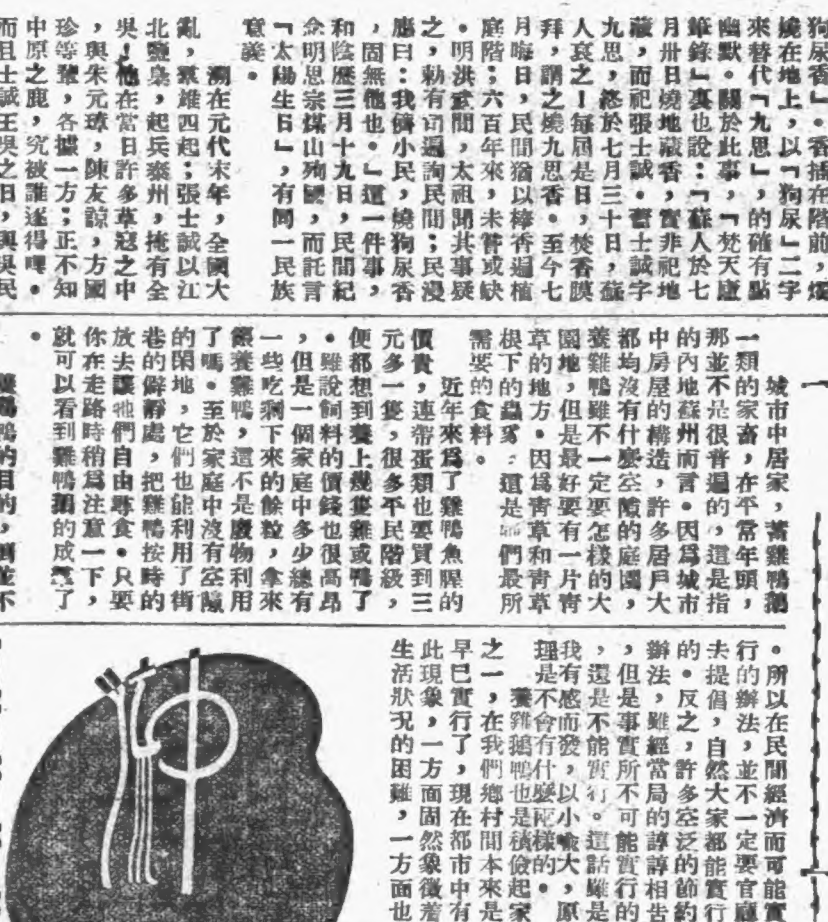 狗尿香」。香插在階前，燭
燒在地上，以「狗尿」二字
來替代「九思」，的確有點
幽默。關於此事，「梵天廬
筆錄」裏也說：「蘇人於七
月卅日燒地藏香，實非祀地
藏，而祀張士誠。蓋士誠字
九思，終於七月三十日，蘇
人哀之！每屆是日，焚香膜
拜，謂之燒九思香。至今七
月晦日，民間猶以棒香遍植
庭階；六百年來，未嘗或缺
。明洪武間，太祖聞其事疑
之，勅有司遍詢民間；民漫
應曰：我儕小民，燒狗尿香
，固無他也。」這一件事，
和陰歷三月十九日，民間紀
念明思宗煤山殉國，而託言
「太陽生日」，有同一民族
意義。
溯在元代末年，全國大
亂，羣雄四起；張士誠以江
北鹽梟，起兵泰州，掩有全
吳！他在當日許多草寇之中
，與朱元璋，陳友諒，方國
珍等輩，各據一方；正不知
中原之鹿，究被誰逐得哩。
而且士誠王吳之日，與吳民
城市中居家，蓄雞鴨鵝
一類的家畜，在平常年頭，
那並不是很普遍的，這是指
的內地蘇州而言。因爲城市
中房屋的構造，許多居戶大
都均沒有什麼空隙的庭園，
養雞鴨雖不一定要怎樣的大
園地，但是最好要有一片青
草的地方。因爲青草和青草
根下的蟲豸，這是牠們最所
需要的食料。
近年來爲了雞鴨魚腥的
價貴，連帶蛋類也要買到三
元多一隻，很多平民階級，
便都想到養上幾隻雞或鴨了
。雖說飼料的價錢也很高昂
，但是一個家庭中多少總有
一些吃剩下來的餘粒，拿來
餵養雞鴨，這不是廢物利用
了嗎。至於家庭中沒有空隙
的閑地，它們也能利用了街
巷的僻靜處，把雞鴨按時的
放去讓牠們自由尋食。只要
你在走路時稍爲注意一下，
就可以看到雞鴨鵝的成羣了
。
養雞鴨的目的，倒並不
。所以在民間經濟而可能實
行的辦法，並不一定要官廳
去提倡，自然大家都能實行
的。反之，許多空泛的節約
辦法，雖經當局的諄諄相告
，但是事實所不可能實行的
，還是不能實行。這話雖是
我有感而發，以小喻大，原
理是不會有什麼兩樣的。
養雞鵝鴨也是積儉起家
之一，在我們鄉村間本來是
早已實行了，現在都市中有
此現象，一方面固然象徵着
生活狀況的困難，一方面也